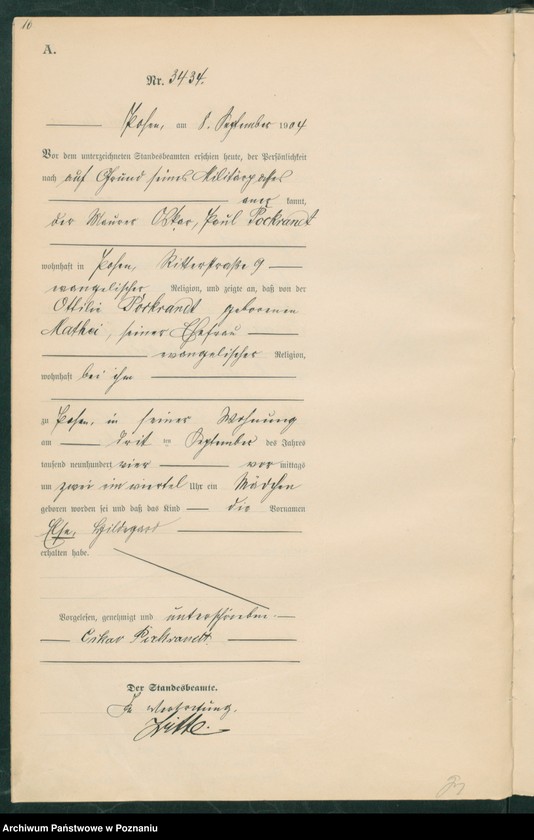 10
A.
Nr. 3434.
Posen, am 8. September 1904
Vor dem unterzeichneten Standesbeamten erschien heute, der Persönlichkeit
nach auf Grund seines Militärpasses
aner kannt,
der Maurer Oskar, Paul Pockrandt
wohnhaft in Posen, Ritterstraße 9
evangelischer Religion, und zeigte an, daß von der
Ottilie Pockrandt geborenen
seiner Ehefrau
evangelischer Religion,
wohnhaft bei ihm
zu Posen, in seiner Wohnung
am drit ten September des Jahres
tausend neunhundert vier vor mittags
um zwei ein viertel Uhr ein Mädchen
geboren worden sei und daß das Kind die Vornamen
Else, Hildegard
erhalten habe.
Vorgelesen, genehmigt und unterschrieben
Oskar Pockrandt.
Der Standesbeamte.
In Vertretung.
Archiwum Państwowe w Poznaniu